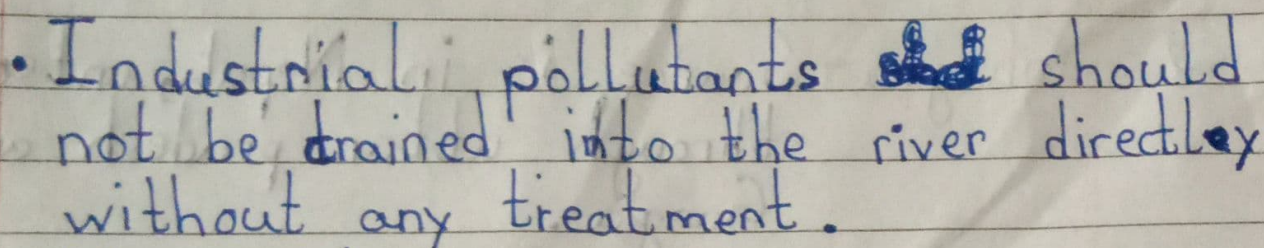 • Industrial pollutants should
not be drained into the river directley
without any treatment.